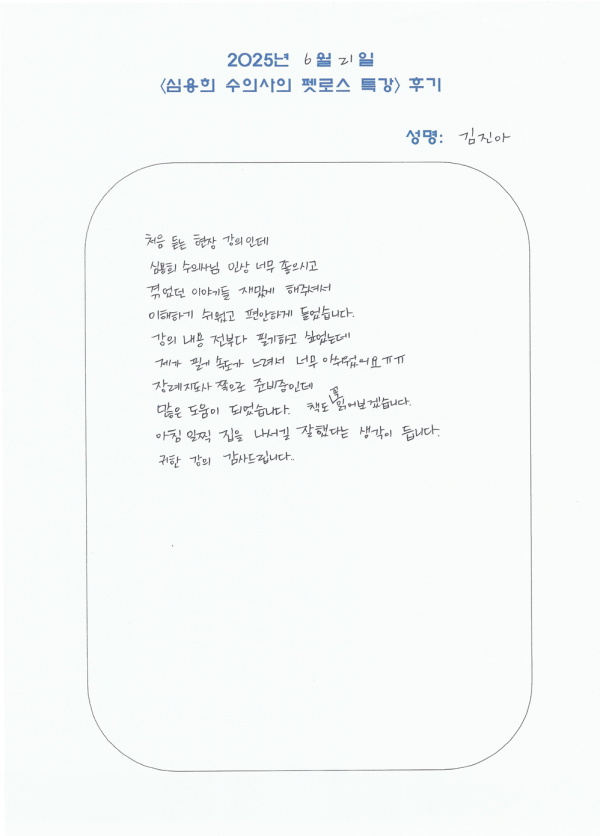 2025년 6월 21일
<심용희 수의사의 펫로스 특강> 후기
성명: 김진아
처음 듣는 현장 강의인데
심용희 수의사님 인상 너무 좋으시고
겪었던 이야기들 재밌게 해주셔서
이해하기 쉬웠고 편안하게 들었습니다.
강의 내용 전부다 필기하고 싶었는데
제가 필기 속도가 느려서 너무 아쉬웠어요ㅠㅠ
장례지도사 쪽으로 준비중인데
많은 도움이 되었습니다. 책도 꼭 읽어보겠습니다.
아침 일찍 집을 나서길 잘했다는 생각이 듭니다.
귀한 강의 감사드립니다..